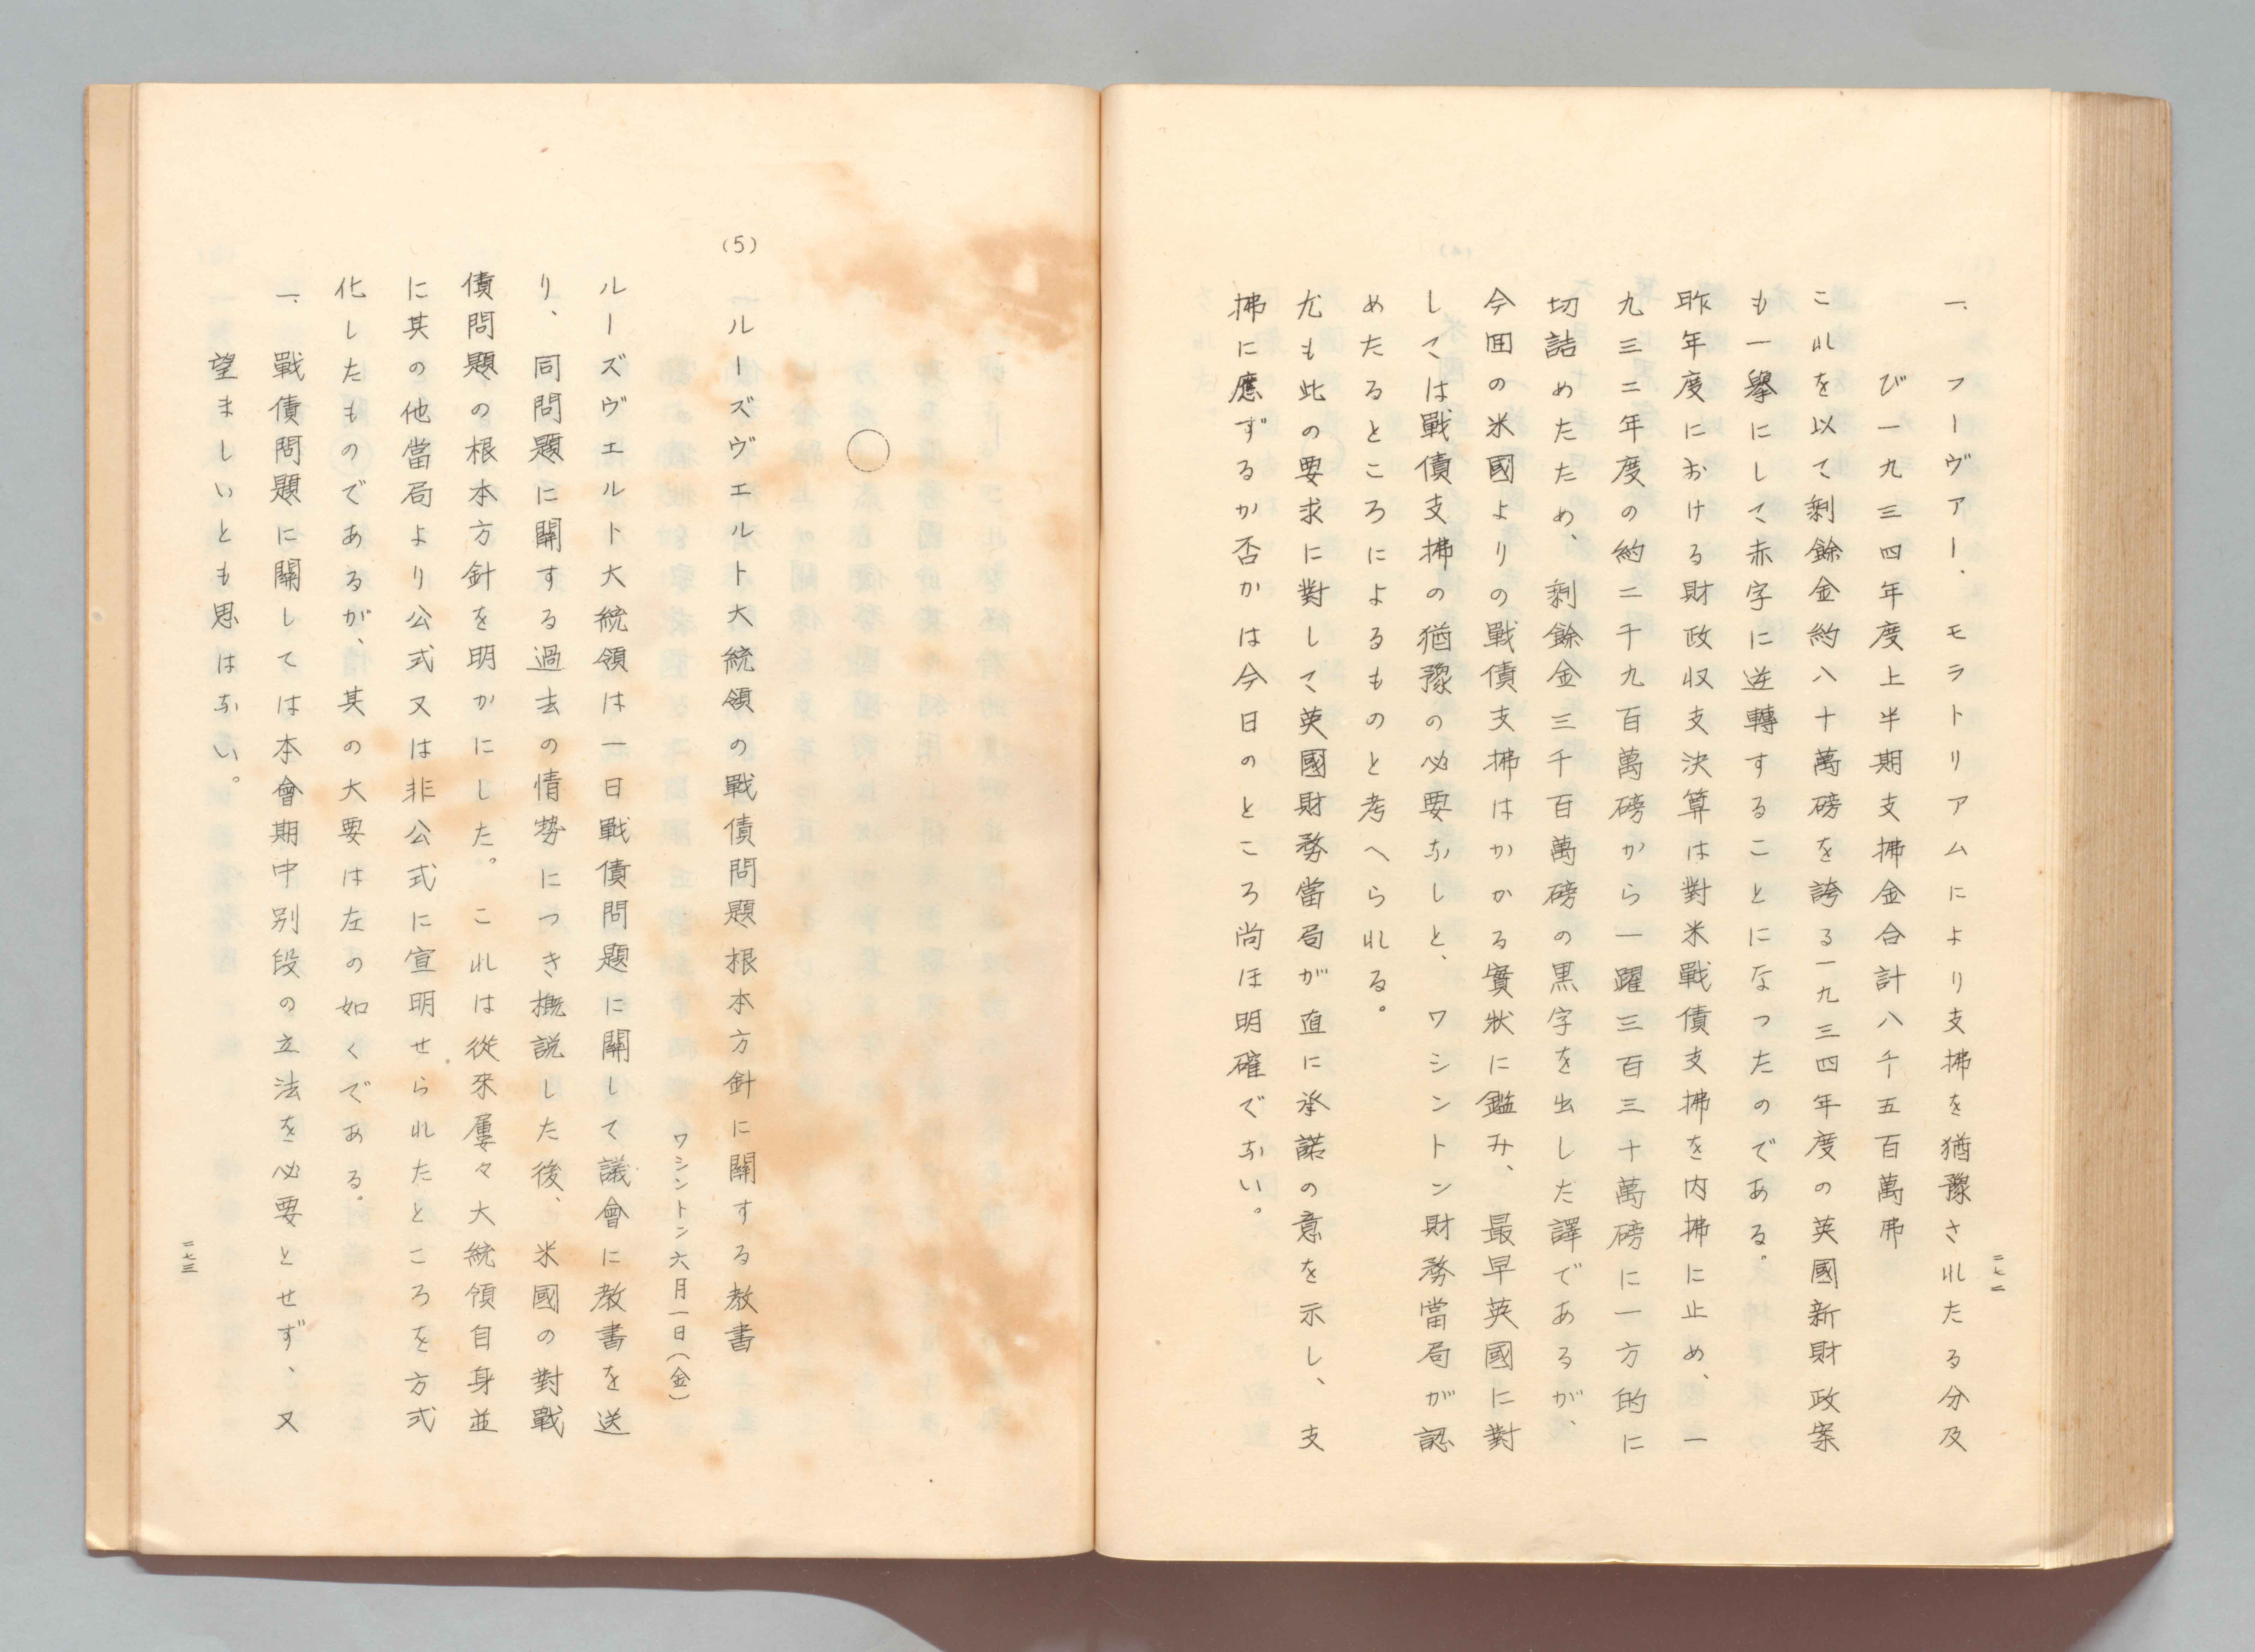 二七二
一、フーヴァー・モラトリアムにより支拂を猶豫されたる分及
び一九三四年度上半期支拂金合計八千五百萬弗
これを以て剩餘金約八十萬磅を誇る一九三四年度の英國新財政案
も一擧にして赤字に逆轉することになつたのである。
昨年度における財政収支決算は對米戰債支拂を内拂に止め、一
九三二年度の約二千九百萬磅から一躍三百三十萬磅に一方的に
切詰めたため、剩餘金三千百萬磅の黒字を出した譯であるが、
今囬の米國よりの戰債支拂はかかる實狀に鑑み、最早英國に對
しては戰債支拂の猶豫の必要なしと、ワシントン財務當局が認
めたるところによるものと考へられる。
尤も此の要求に對して英國財務當局が直に承諾の意を示し、支
拂に應ずるか否かは今日のところ尚ほ明確でない。
○
(5)
一ルーズヴエルト大統領の戰債問題根本方針に關する教書
ワシントン六月一日(金)
ルーズヴエルト大統領は一日戰債問題に關して議會に教書を送
り、同問題に關する過去の情勢につき概説した後、米國の對戰
債問題の根本方針を明かにした。これは從來屢々大統領自身並
に其の他當局より公式又は非公式に宣明せられたところを方式
化したものであるが、其の大要は左の如くである。
一、戰債問題に關しては本會期中別段の立法を必要とせず、又
望ましいとも思はない。
二七三